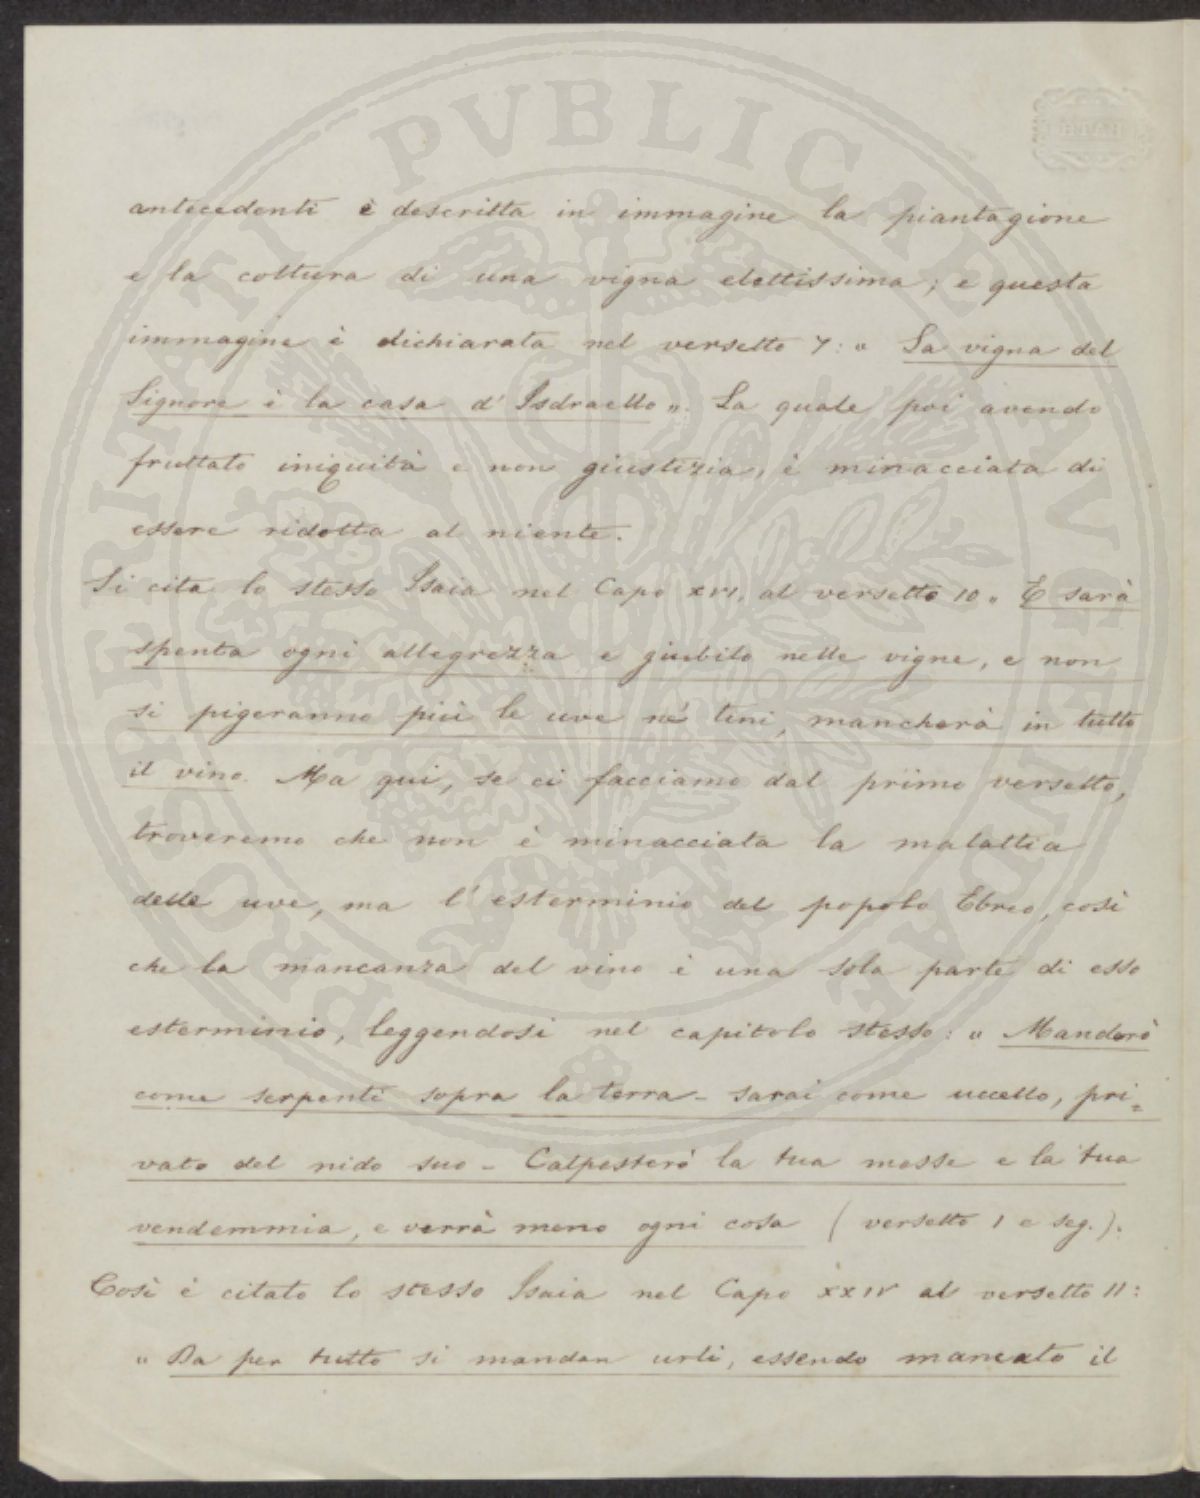 antecedenti è descritta in immagine la piantagione
e la coltura di una vigna elettissima; e questa
immagine è dichiarata nel versetto 7: « La vigna del
Signore è la casa d' Isdraello ». La quale poi avendo
fruttato iniquità e non giustizia, è minacciata di
essere ridotta al niente.
Si cita lo stesso Isaia nel Capo XVI, al versetto 10 « E sarà
spenta ogni allegrezza e giubilo nelle vigne, e non
si pigeranno più le uve né tini, mancherà in tutto
il vino. Ma qui, se ci facciamo dal primo versetto,
troveremo che non è minacciata la malattia
delle uve, ma l' esterminio del popolo Ebreo, così
che la mancanza del vino è una sola parte di esso
esterminio, leggendosi nel capitolo stesso: « Manderò
come serpenti sopra la terra - sarai come uccello, pri=
vato del nido suo - Calpesterò la tua messe e la tua
vendemmia, e verrà meno ogni cosa ( versetto 1 e seg.).
Così è citato lo stesso Isaia nel Capo XXIV al versetto 11:
« Da per tutto si mandan urli, essendo mancato il